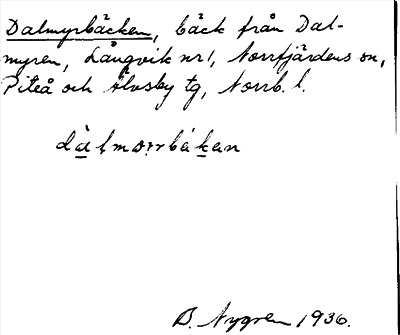 Dalmyrbäcken, bäck från Dal-
myren, Långvik nr 1, Norrfjärdens sn,
Piteå och Älvsby tg, Norrb. l.
B. Nygren 1936.